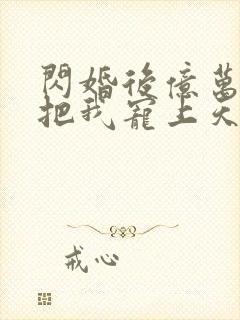 閃婚後億萬
把我寵上天
戒心